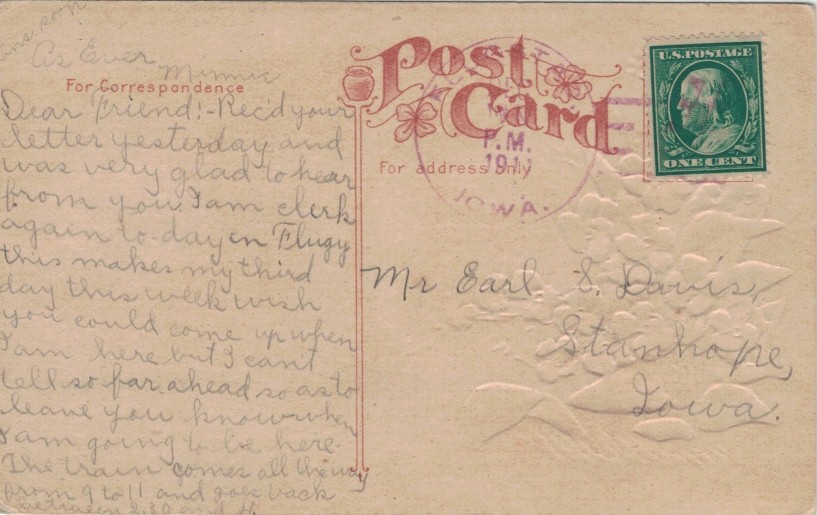 ans. soon
As Ever
Minnie
For Correspondence
Dear Friend! - Rec'd your
letter yesterday and
was very glad to hear
from you. I am clerk
again to-day in Flugy
this makes my third
day this week wish
you could come up when
I am here but I can't
tell so far ahead so as to
leave you know when
I am going to be here.
The train comes all the way
from 9 to 11 and goes back
between 2.30 and 4.
Post
Card
For address only
P.M.
1911
IOWA.
U.S. POSTAGE
ONE CENT
Mr Earl S. Davis,
Stanhope,
Iowa.